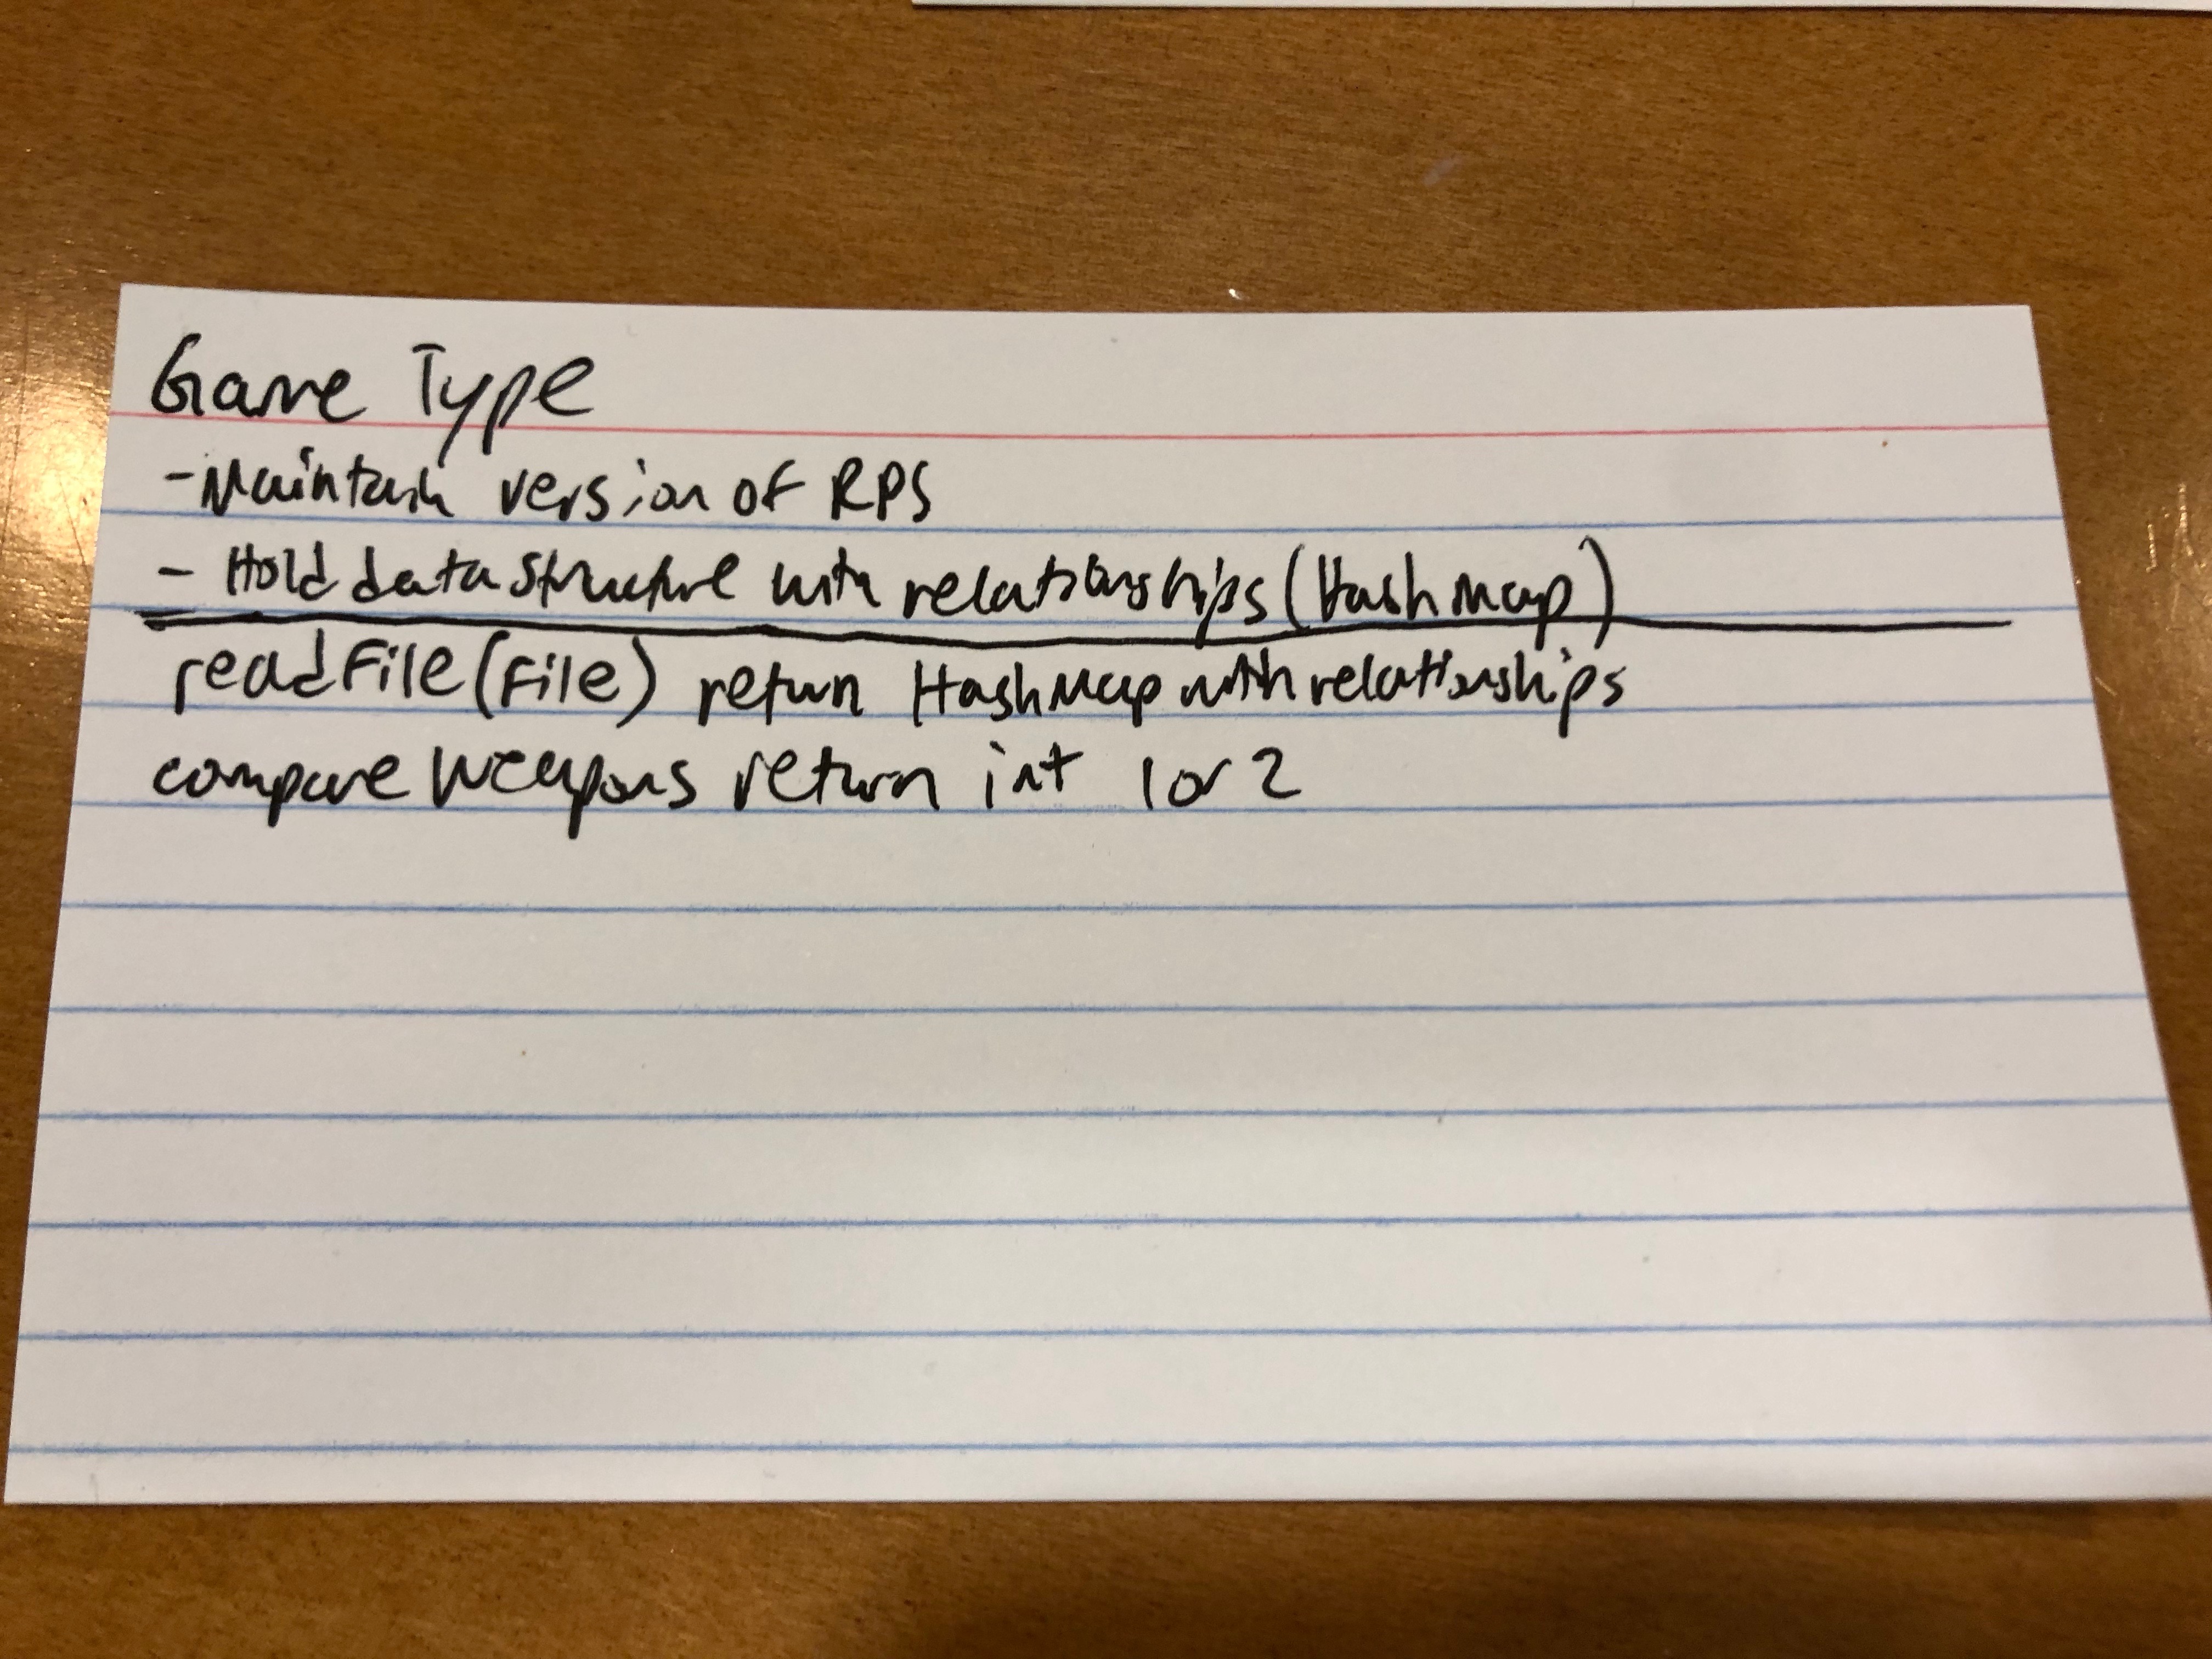 Game Type
- Maintain version of RPS
- Hold data structure with relationships (HashMap)
readFile(File) return HashMap with relationships
compare Weapons return int 1 or 2